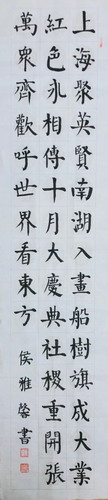 上海聚英賢南湖入畫船樹旗成大業
紅色永相傳十月大慶典社稷重開張
萬眾齊歡呼世界看東方
侯雅馨書